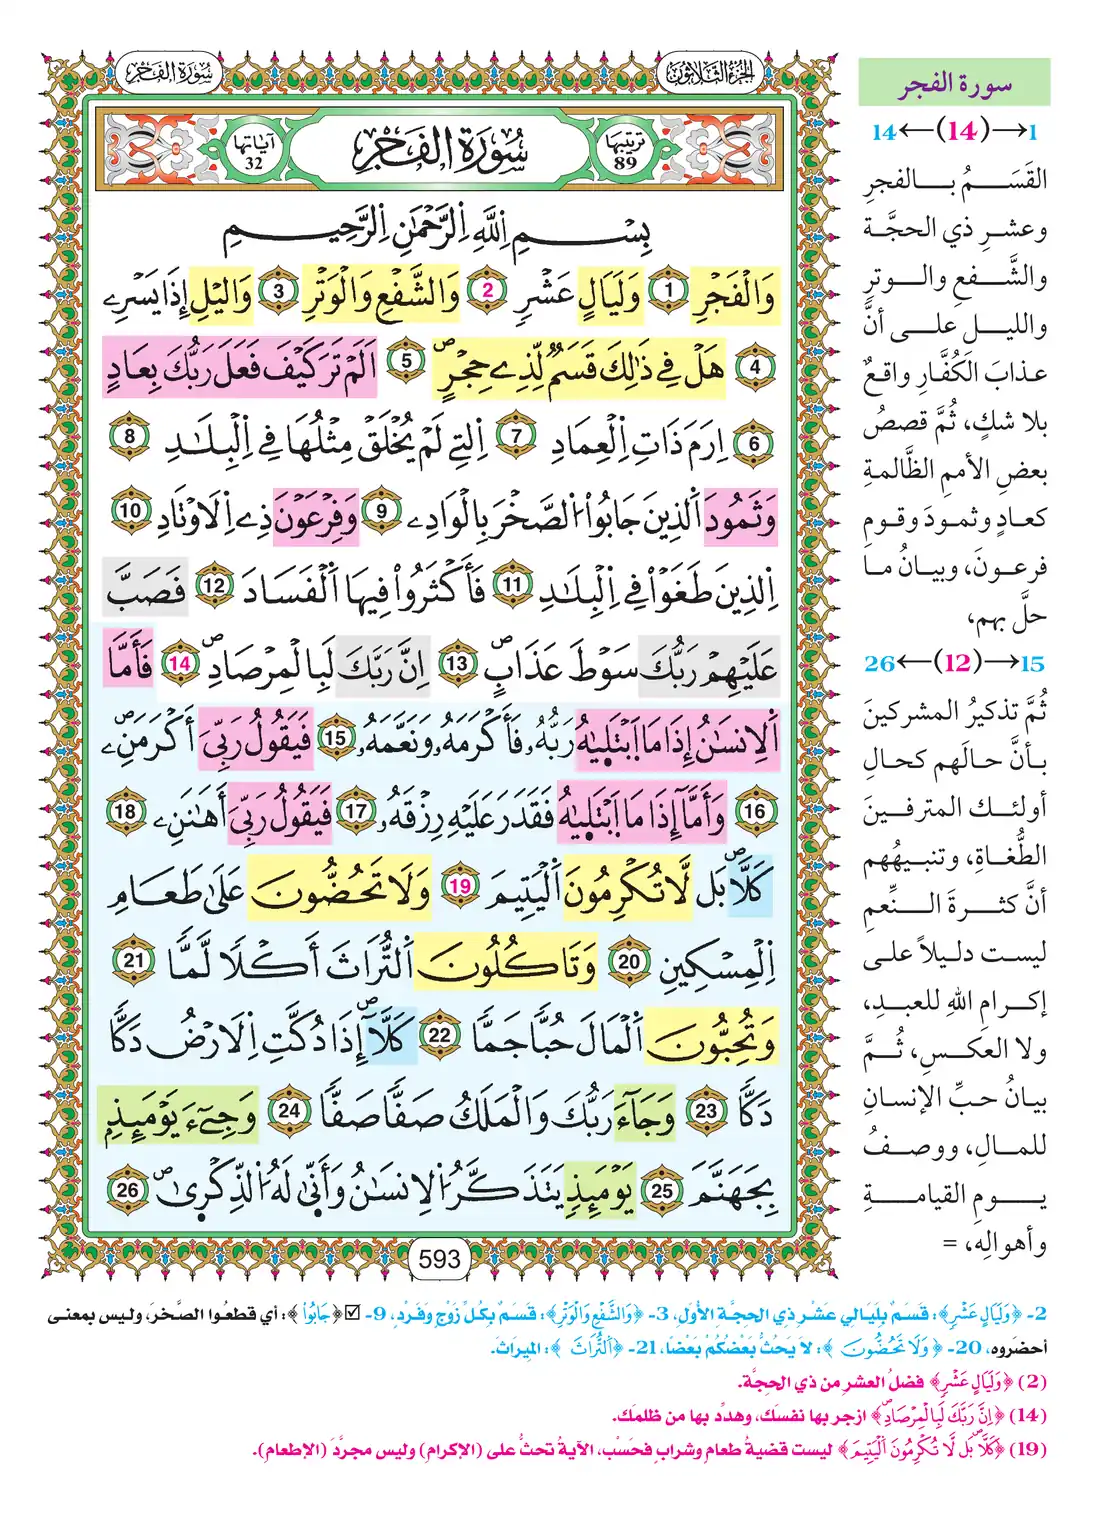 سُورَةُ الفَجْرِ
الجُزْءُ الثَّلَاثُونَ
ترتيبها 89
سُورَةُ الفَجْرِ
آياتها 32
بِسْمِ اِ۬للَّهِ اِ۬لرَّحْمَٰنِ اِ۬لرَّحِيمِ
وَالْفَجْرِ 1 وَلَيَالٍ عَشْرٖ 2 وَالشَّفْعِ وَالْوَتْرِ 3 وَاليْلِ إِذَا يَسْرِۦ
4 هَلْ فِي ذَٰلِكَ قَسَمٞ لِّذِے حِجْرٍۖ 5 اَلَمْ تَرَ كَيْفَ فَعَلَ رَبُّكَ بِعَادٍ
6 اِرَمَ ذَاتِ اِ۬لْعِمَادِ 7 اِ۬لتِے لَمْ يُخْلَقْ مِثْلُهَا فِے اِ۬لْبِلَٰدِ 8
وَثَمُودَ اَ۬لذِينَ جَابُوا۟ اُ۬لصَّخْرَ بِالْوَادِۦ 9 وَفِرْعَوْنَ ذِے اِ۬لَاوْتَادِ 10
اِ۬لذِينَ طَغَوْا۟ فِے اِ۬لْبِلَٰدِ 11 فَأَكْثَرُوا۟ فِيهَا اَ۬لْفَسَادَ 12 فَصَبَّ
عَلَيْهِمْ رَبُّكَ سَوْطَ عَذَابٍۖ 13 اِنَّ رَبَّكَ لَبِالْمِرْصَادِۖ 14 فَأَمَّا
اَ۬لِانسَٰنُ إِذَا مَا اَ۪بْتَلَيٰهُ رَبُّهُۥ فَأَكْرَمَهُۥ وَنَعَّمَهُۥ 15 فَيَقُولُ رَبِّيَ أَكْرَمَنِۦۖ
16 وَأَمَّآ إِذَا مَا اَ۪بْتَلَيٰهُ فَقَدَرَ عَلَيْهِ رِزْقَهُۥ 17 فَيَقُولُ رَبِّيَ أَهَٰنَنِۦ 18
كَلَّاۖ بَل لَّا تُكْرِمُونَ اَ۬لْيَتِيمَ 19 وَلَا تَحُضُّونَ عَلَىٰ طَعَامِ
اِ۬لْمِسْكِينِ 20 وَتَاكُلُونَ اَ۬لتُّرَاثَ أَكْلًا لَّمًّا 21
وَتُحِبُّونَ اَ۬لْمَالَ حُبًّا جَمًّا 22 كَلَّآۖ إِذَا دُكَّتِ اِ۬لَارْضُ دَكًّا
دَكًّا 23 وَجَآءَ رَبُّكَ وَالْمَلَكُ صَفًّا صَفًّا 24 وَجِےٓءَ يَوْمَئِذِۢ
بِجَهَنَّمَ 25 يَوْمَئِذٍ يَتَذَكَّرُ اُ۬لِانسَٰنُ وَأَنّۭيٰ لَهُ اُ۬لذِّكْر۪يٰۖ 26
593
سورة الفجر
1→(14)←14
القَسَمُ بالفجرِ
وعشرِ ذي الحجَّة
والشَّفعِ والوترِ
والليل على أنَّ
عذابَ الكُفَّارِ واقعٌ
بلا شكٍ، ثُمَّ قصصُ
بعضِ الأممِ الظَّالمةِ
كعادٍ وثمودَ وقوم
فرعونَ، وبيانُ ما
حلَّ بهم،
15→(12)←26
ثُمَّ تذكيرُ المشركينَ
بأنَّ حالَهم كحالِ
أولئك المترفينَ
الطُّغاةِ، وتنبيهُهم
أنَّ كثرةَ النِّعمِ
ليست دليلاً على
إكرامِ اللهِ للعبدِ،
ولا العكسِ، ثُمَّ
بيانُ حبِّ الإنسانِ
للمالِ، ووصفُ
يومِ القيامةِ
وأهوالِه، =
2- ﴿وَلَيَالٍ عَشْرٍ﴾: قَسَمٌ بِلَيَالي عَشْرِ ذي الحِجَّةِ الأُوَلِ، 3- ﴿وَالشَّفْعِ وَالْوَتْرِ﴾: قَسَمٌ بِكُلِّ زَوْجٍ وَفَرْدٍ، 9- ☑ ﴿جَابُوا۟﴾: أي قطعُوا الصَّخرَ، وليس بمعنى
أحضَروه، 20- ﴿وَلَا تَحُضُّونَ﴾: لَا يَحُثُّ بَعْضُكُمْ بَعْضًا، 21- ﴿اَ۬لتُّرَاثَ﴾: المِيرَاثَ.
(2) ﴿وَلَيَالٍ عَشْرٍ﴾ فضلُ العشرِ من ذي الحجَّة.
(14) ﴿اِنَّ رَبَّكَ لَبِالْمِرْصَادِۖ﴾ ازجر بها نفسَك، وهدِّد بها من ظلمَك.
(19) ﴿كَلَّاۖ بَل لَّا تُكْرِمُونَ اَ۬لْيَتِيمَ﴾ ليست قضيةُ طعام وشرابٍ فحَسْب، الآيةُ تحثُّ على (الإكرام) وليس مجرَّدَ (الإطعام).